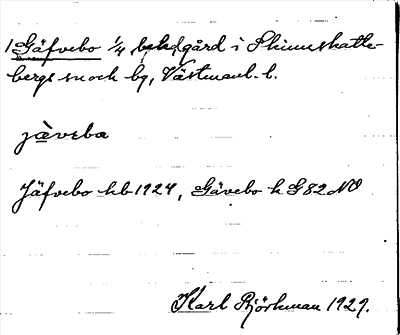 1 Gäfvebo ¼ bebd gård i Skinnskatte-
bergs sn och bg, Västmanl. l.
jäveba
Jäfvebo hb 1924, Gävebo k G82 NO
Karl Björkman 1929.